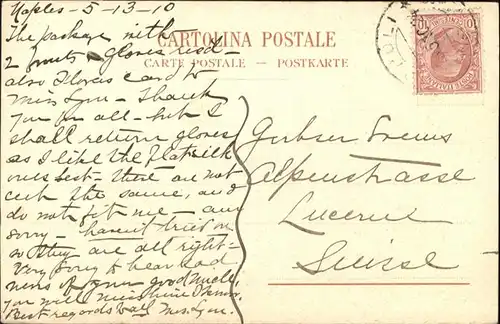 Naples - 5 - 13 - 10
The package with
2 gloves rec'd -
also Flora's card to
Miss Lyn - Thank
you for all - but I
shall return gloves
as I like the flat silk
ones best - there are not
cut the same, and
do not fit me - am
sorry - haven't tried on
so they are all right -
Very sorry to hear bad
news of your good
you will
Best regards to all Mrs. Lyn.
CARTOLINA POSTALE
CARTE POSTALE — POSTKARTE
Alpenstrasse
Lucerne
Suisse